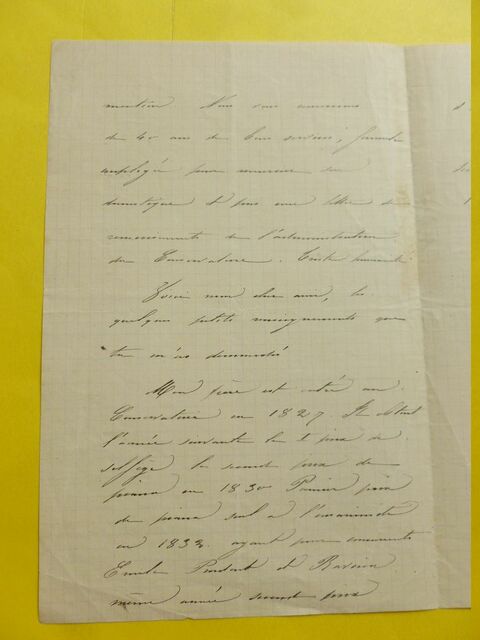 de 40 ans de bons services; formule
employée pour remercier un
domestique et pas une lettre de
remerciements de l'administration
du Conservatoire. Triste humanité
Voici mon cher ami, les
quelques petits renseignements que
tu m'as demandés
Mon père est entré au
Conservatoire en 1827. Il obtint
l'année suivante le 1er prix de
solfège le second prix de
piano en 1830 Premier prix
de piano seul à l'unanimité
en 1832. ayant pour concurrents
Emile Prudent et Ravina
même année second prix